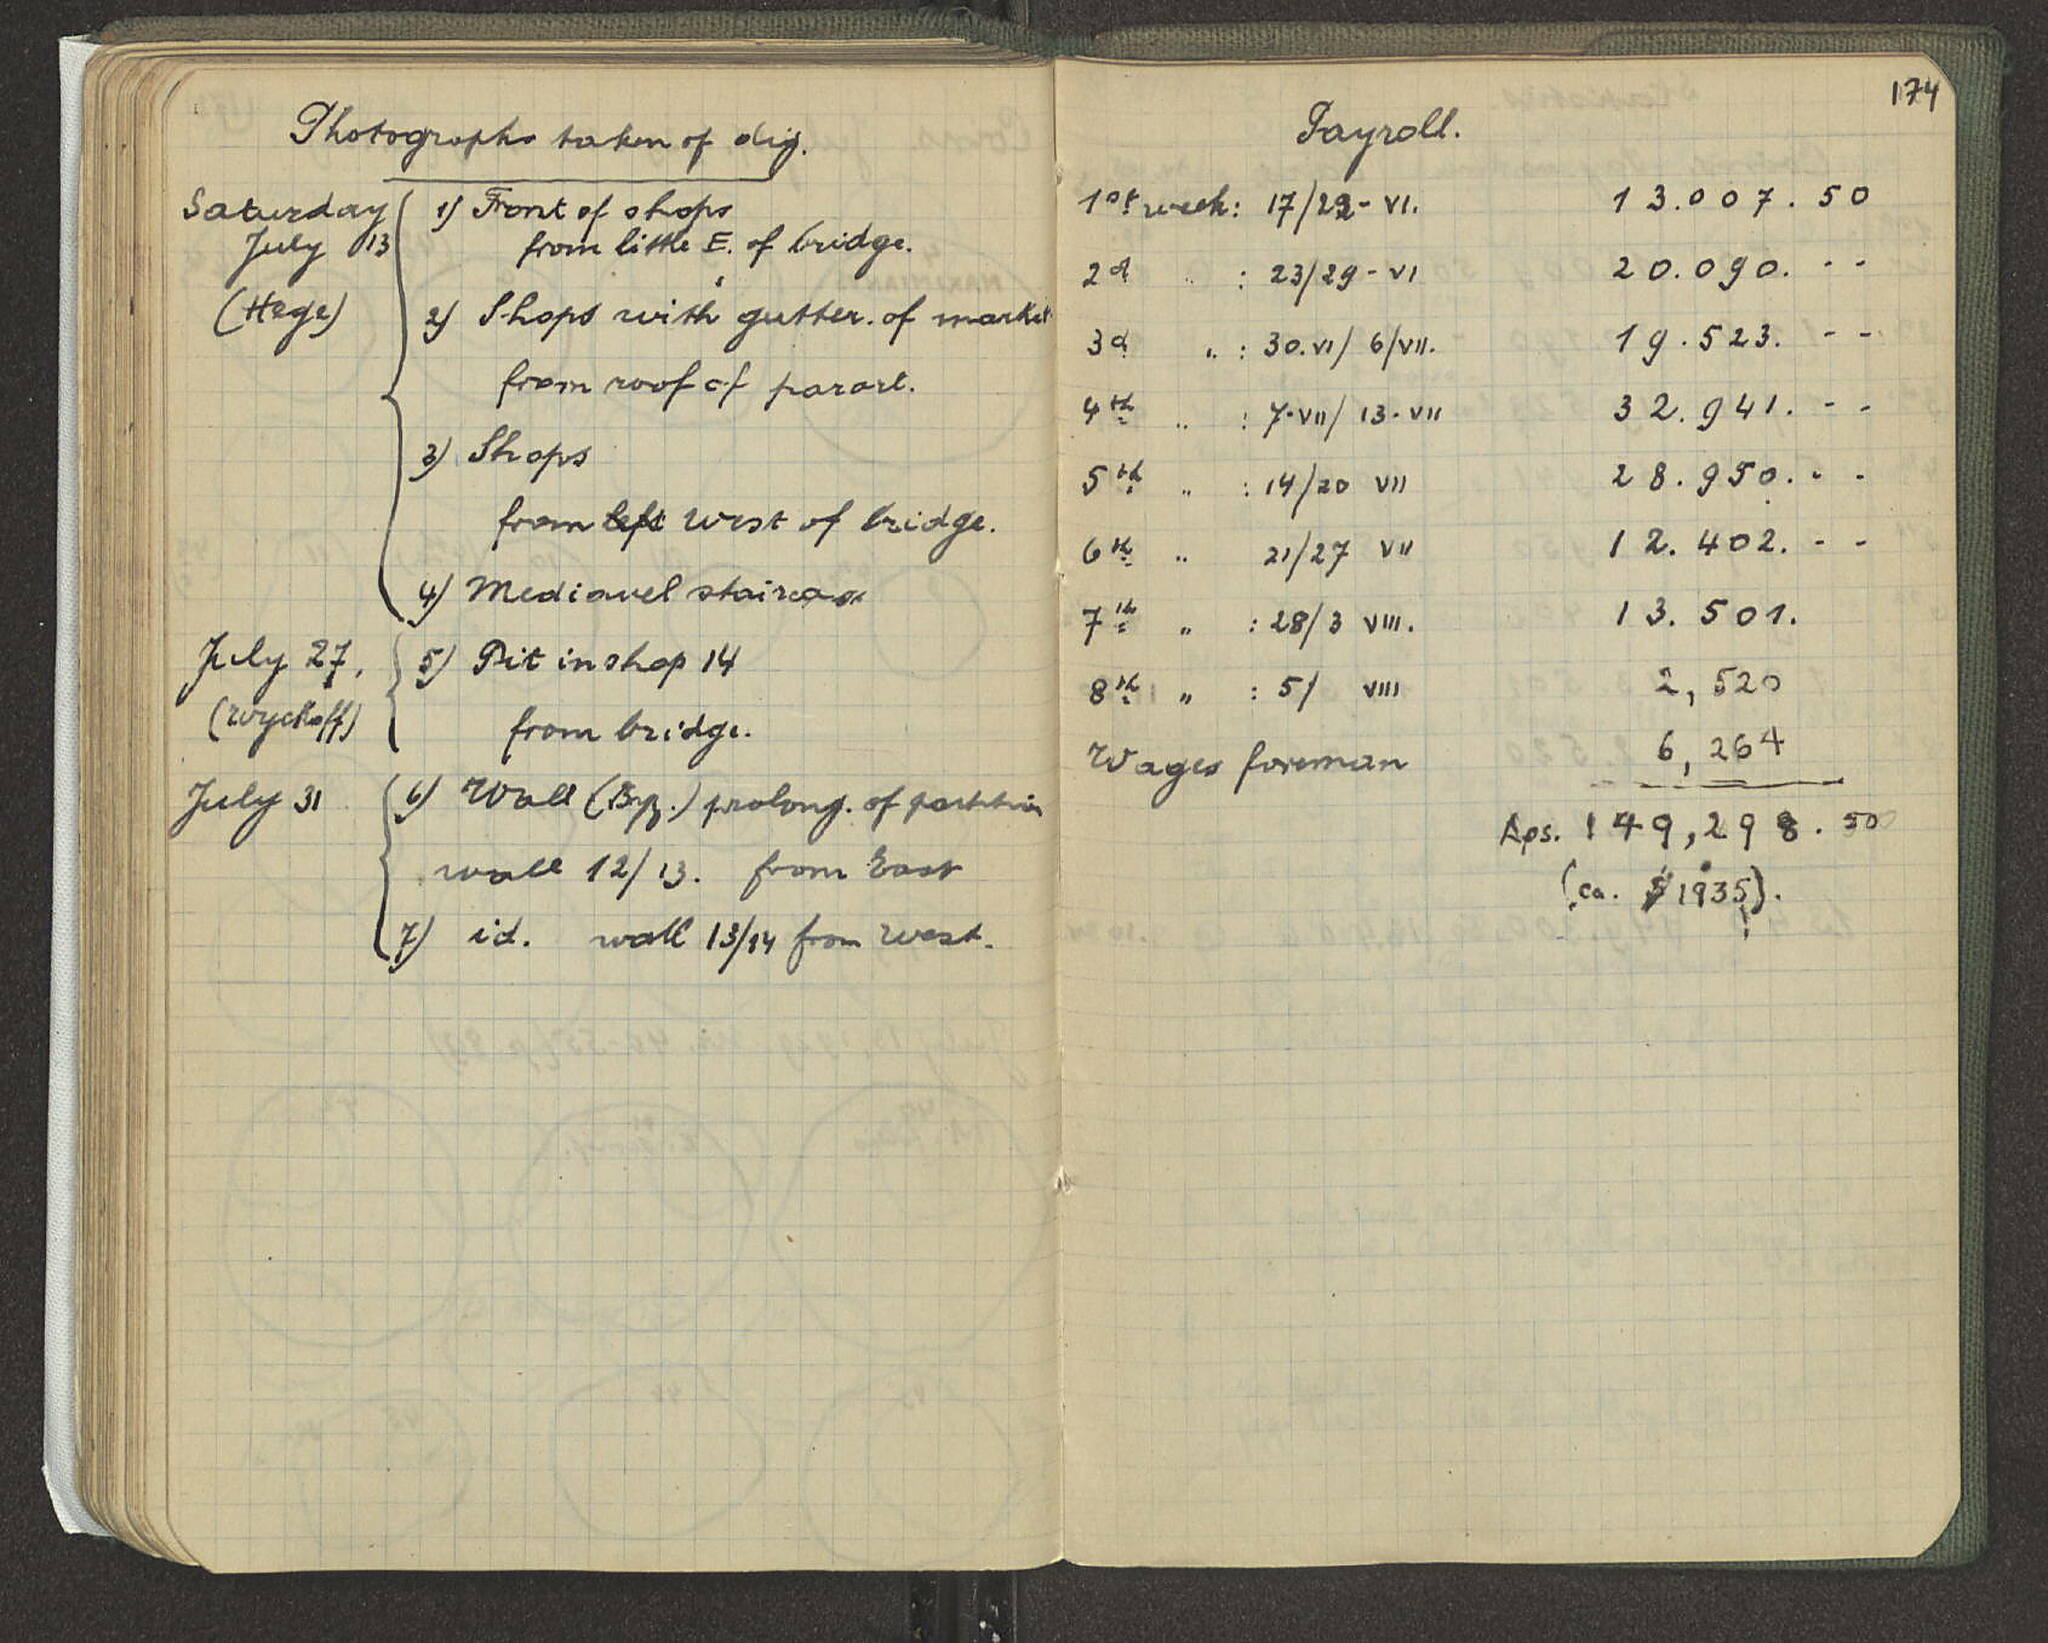 Photographs taken of dig.
Saturday
July 13
(Hege)
1) Front of shops
from little E. of bridge.
2) Shops with gutter. of market
from roof of
3) Shops
from left West of bridge.
4) Mediavel staircase
July 27.
(Wyckoff)
5) Pit in shop 14
from bridge.
July 31
6) Wall (Byz.) prolong. of partition
wall 12/13. from East
7) id. wall 13/14 from West.
174
Payroll.
1st week: 17/22-VI. 13.007.50
2d " : 23/29-VI 20.090.--
3d " : 30.VI/6/VII. 19.523.--
4th " : 7-VII/13-VII 32.941.--
5th " : 14/20 VII 28.950.--
6th " 21/27 VII 12.402.--
7th " : 28/3 VIII. 13.501.
8th " : 5/ VIII 2,520
Wages foreman 6,264
149,298.50
(ca. $1935).